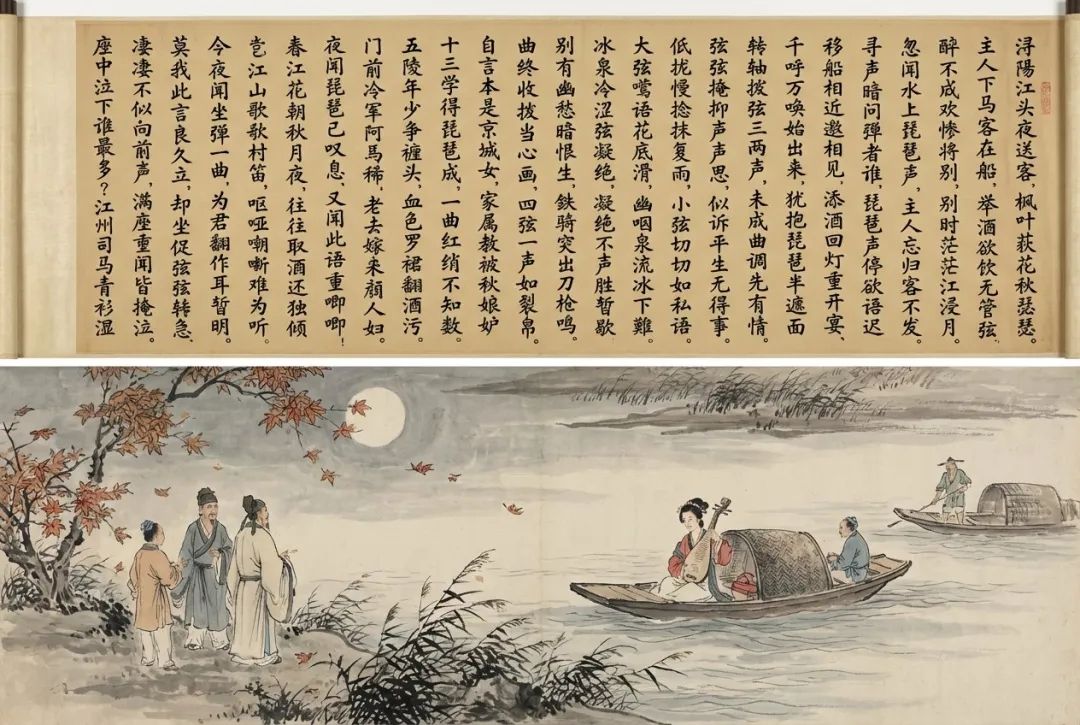 浔陽江头夜送客，枫叶荻花秋瑟瑟。
主人下马客在船，举酒欲饮无管弦，
醉不成欢惨将别，别时茫茫江浸月。
忽闻水上琵琶声，主人忘归客不发。
寻声暗问弹者谁，琵琶声停欲语迟
移船相近邀相见，添酒回灯重开宴、
千呼万唤始出来，犹抱琵琶半遮面
转轴拨弦三两声，未成曲调先有情。
弦弦掩抑声声思，似诉平生无得事。
低拢慢捻抹复雨，小弦切切如私语。
大弦莺语花底滑，幽咽泉流冰下難。
冰泉冷涩弦凝绝，凝绝不声胜暂歇
别有幽愁暗恨生，鉄骑突出刀枪鸣。
曲终收拨当心画，四弦一声如裂帛。
自言本是京城女，家属教被秋娘妒
十三学得琵琶成，一曲红绡不知数。
五陵年少争褈头，血色罗裙翻酒污。
门前冷军阿馬稀，老去嫁来顔人妇。
夜闻琵琶己叹息、又闻此语重唧唧！
春江花朝秋月夜，往往取酒还独倾
岂江山歌歌村笛，呕哑嘲哳难为听。
今夜闻坐弹一曲，为君翻作耳暂明。
莫我此言良久立，却坐促弦弦转急、
凄凄不似向前声，满座重闻皆掩泣。
座中泣下谁最多？江州司马青衫湿